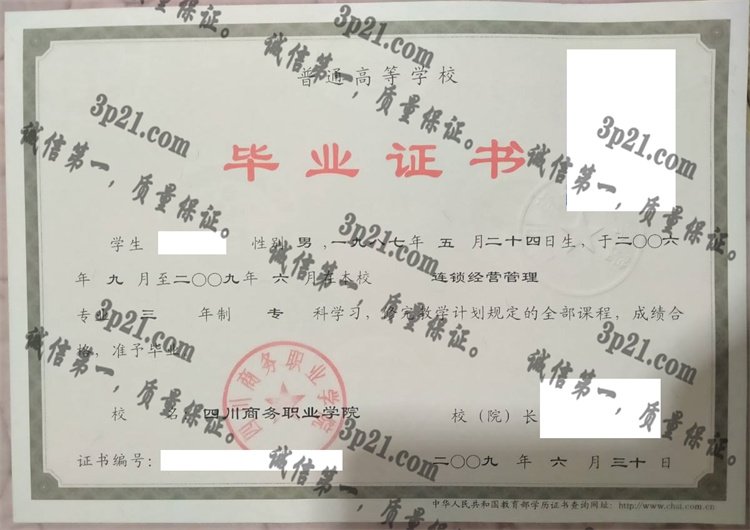 普通高等学校
毕业证书
学生 性别 男 ,一九八七年 五 月二十四日生，于二〇〇六
年 九 月至二〇〇九年 六 月在本校 连锁经营管理
专业 三 年制 专 科学习，修完教学计划规定的全部课程，成绩合
格，准予毕业
校 名：四川商务职业学院 校（院）长
四川商务职业学院
证书编号： 二〇〇九 年 六 月 三十 日
中华人民共和国教育部学历证书查询网址：http://www.chsi.com.cn
3p21.com
诚信第一，质量保证。
3p21.com
诚信第一，质量保证。
3p21.com
诚信第一，质量保证。
3p21.com
诚信第一，质量保证。
3p21.com
诚信第一，质量保证。
3p21.com
诚信第一，质量保证。
3p21.com
诚信第一，质量保证。
质量保证。